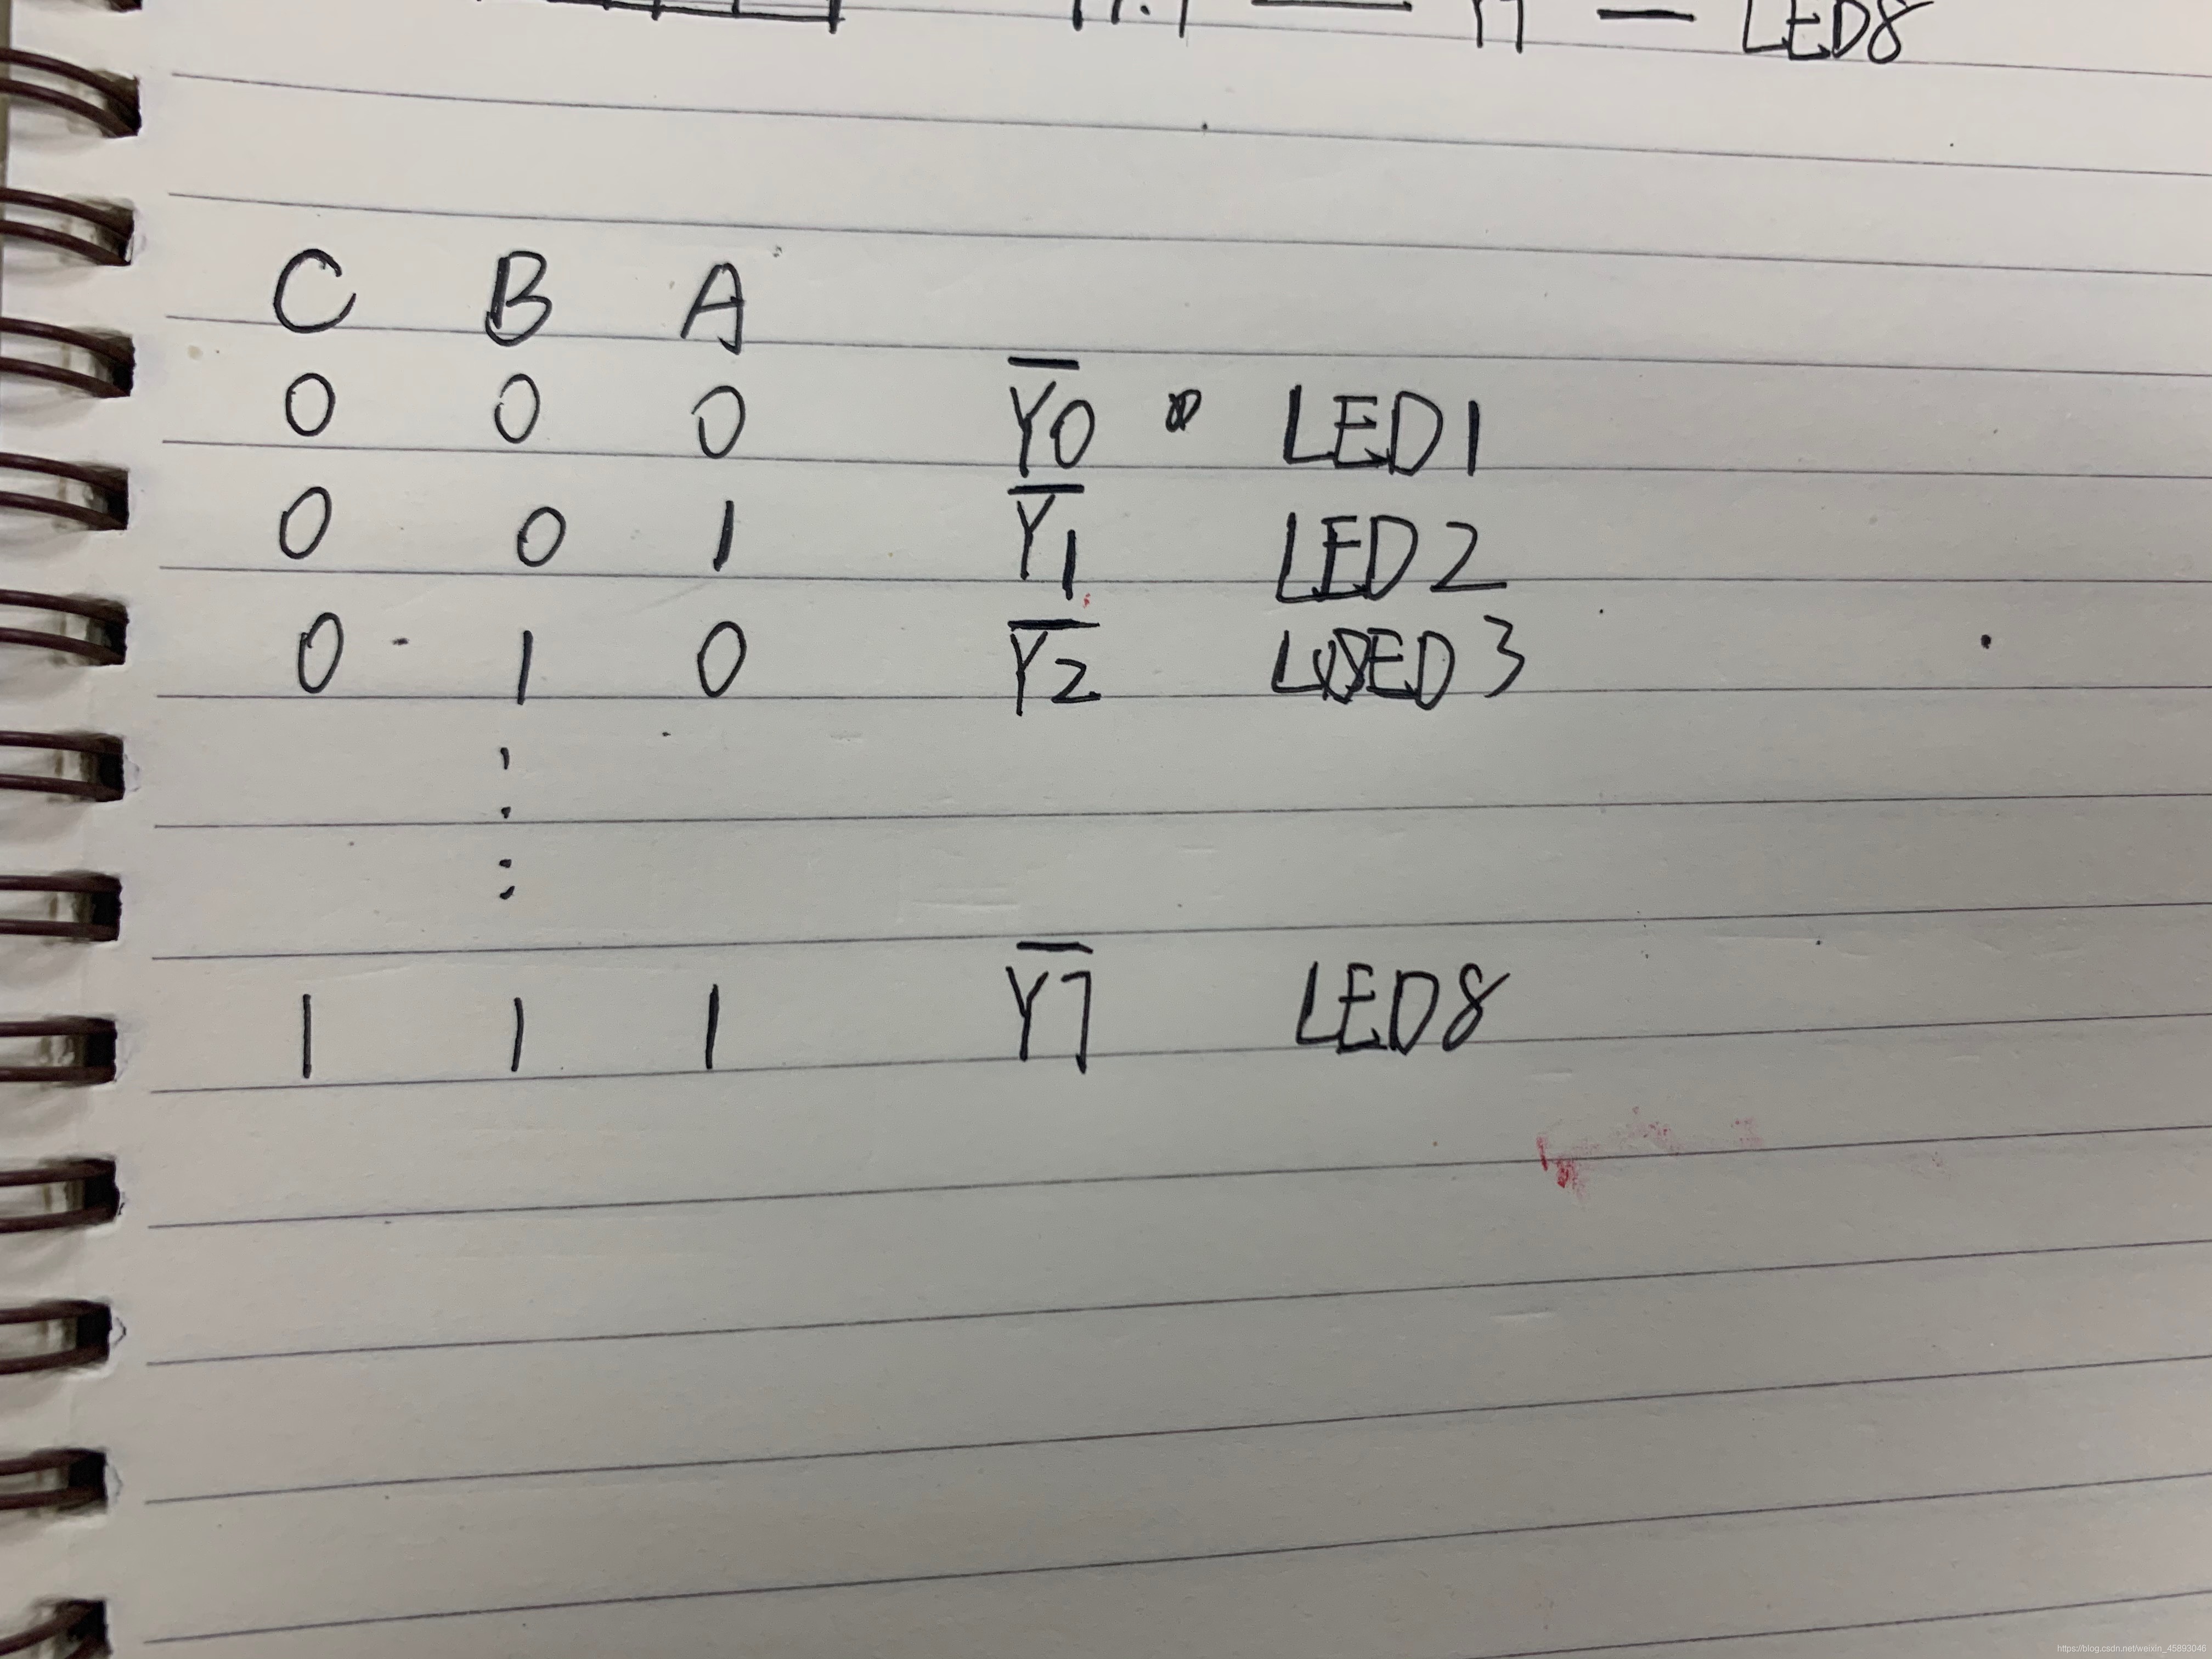 Y7 — LED8
C B A
0 0 0 Y̅0̅ LED1
0 0 1 Y̅1̅ LED2
0 1 0 Y̅2̅ LED3
⋮
1 1 1 Y̅7̅ LED8
https://blog.csdn.net/weixin_45893046